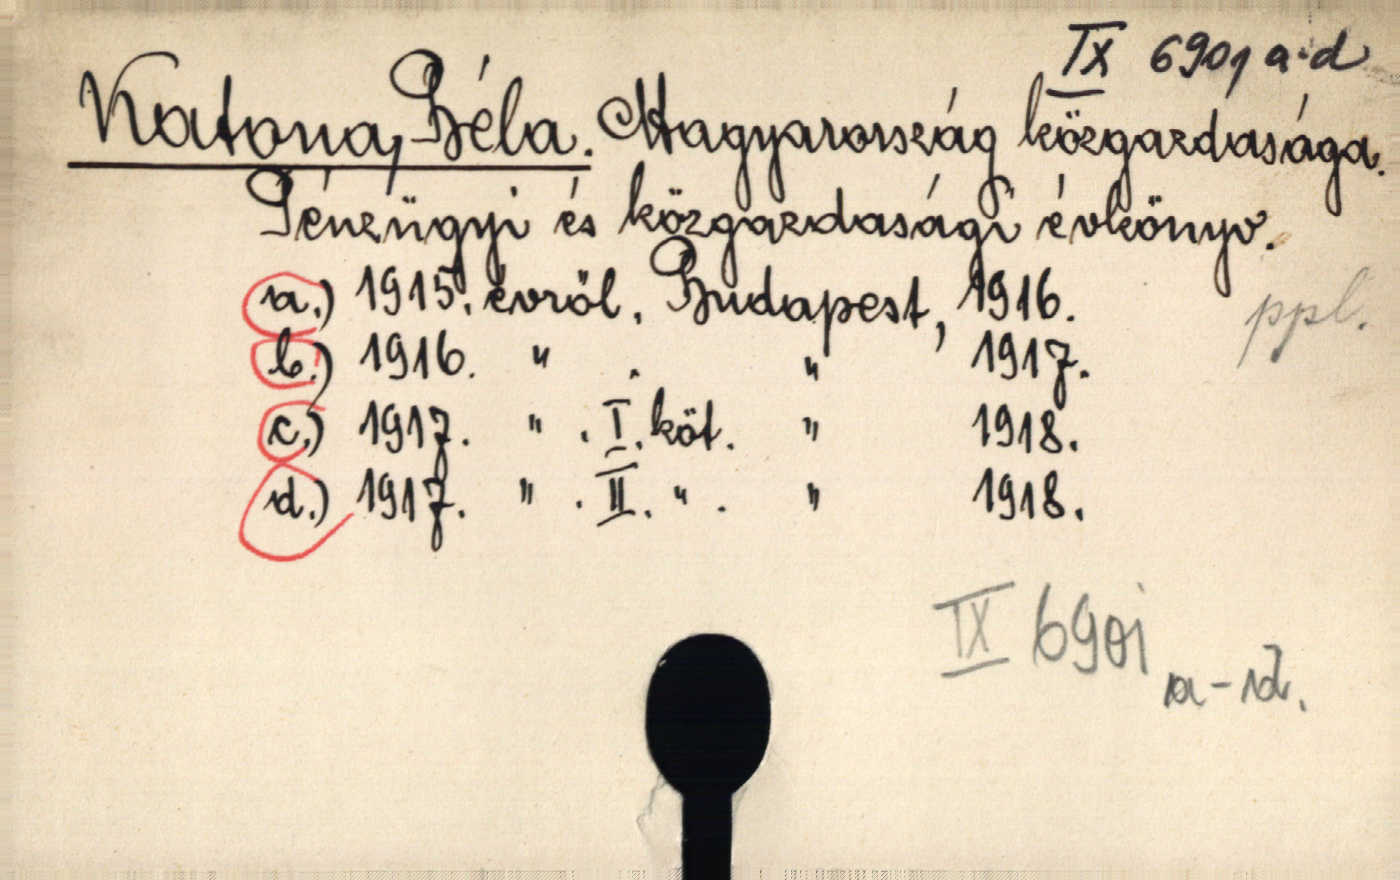 IX 6901 a-d
Katona, Béla. Magyarország közgazdasága.
Pénzügyi és közgazdasági évkönyv.
a.) 1915. évről. Budapest, 1916.
b.) 1916. " . " 1917.
c.) 1917. " . I. köt. " 1918.
d.) 1917. " . II. " . " 1918.
ppl.
IX 690i
a-d.